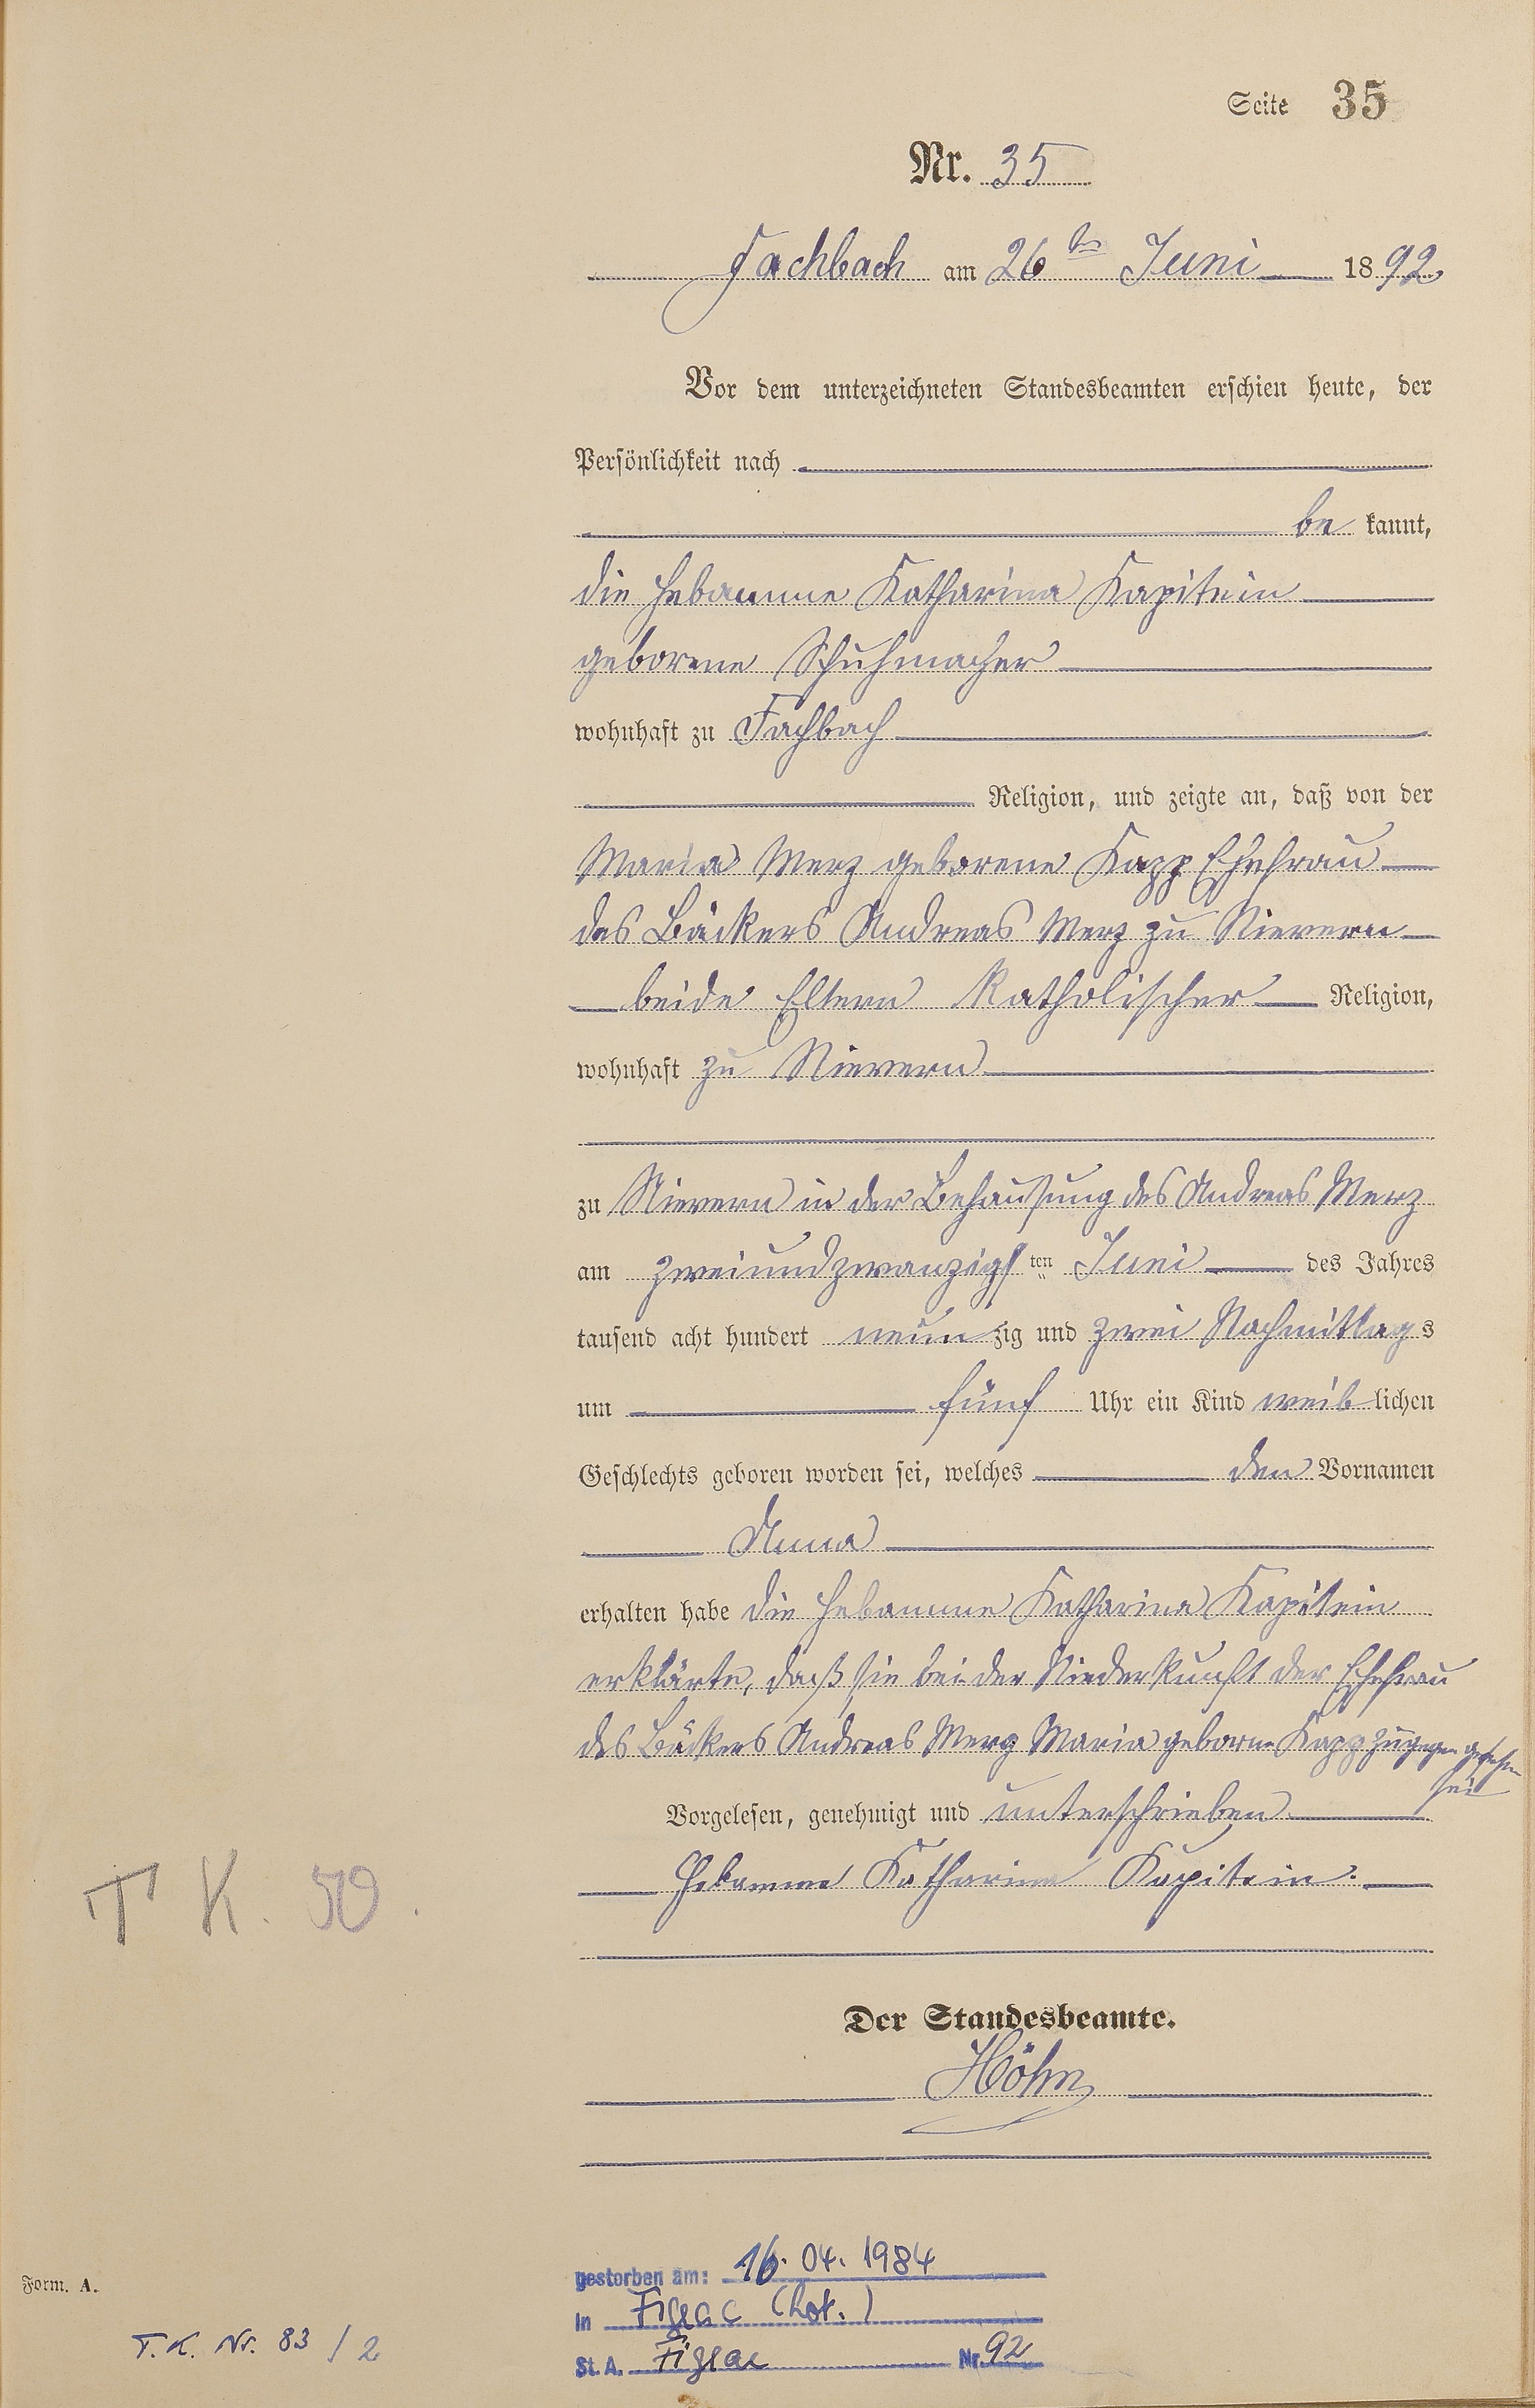 Seite 35
Nr. 35
Fachbach am 26ten Juni 1892
Vor dem unterzeichneten Standesbeamten erschien heute, der
Persönlichkeit nach
be kannt,
die Hebamme Katharina Kapitein
geborene Schuhmacher
wohnhaft zu Fachbach
Religion, und zeigte an, daß von der
Maria Merz geborene Kapp Ehefrau
des Bäckers Andreas Merz zu Nievern
beide Eltern katholischer Religion,
wohnhaft zu Nievern
zu Nievern in der Behausung des Andreas Merz
am zweiundzwanzigsten Juni des Jahres
tausend acht hundert neunzig und zwei Nachmittags
um fünf Uhr ein Kind weiblichen
Geschlechts geboren worden sei, welches den Vornamen
Anna
erhalten habe die Hebamme Katharina Kapitein
erklärte, daß sie bei der Niederkunft der Ehefrau
des Bäckers Andreas Merz Maria geborne Kapp zugegen gewesen
sei
Vorgelesen, genehmigt und unterschrieben
Hebamme Katharina Kapitein.
T K. 50.
Der Standesbeamte.
Höhn
gestorben am: 16. 04. 1984
in Figeac (Lot.)
St. A. Figeac Nr. 92
Form. A.
T. K. Nr. 83 / 2